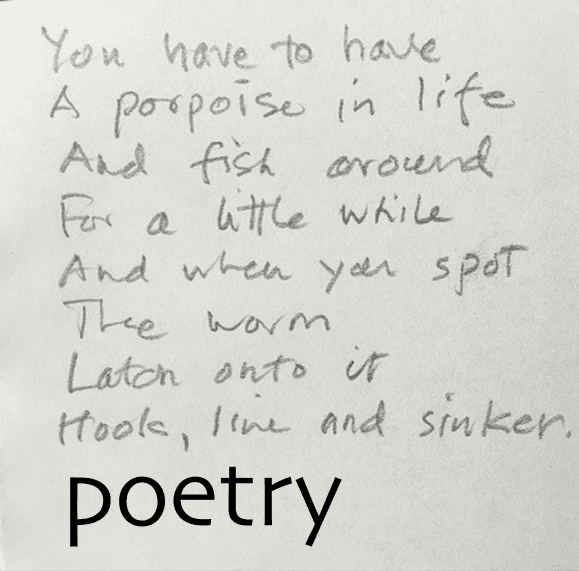 You have to have
A porpoise in life
And fish around
For a little while
And when you spot
The worm
Latch onto it
Hook, line and sinker.
poetry